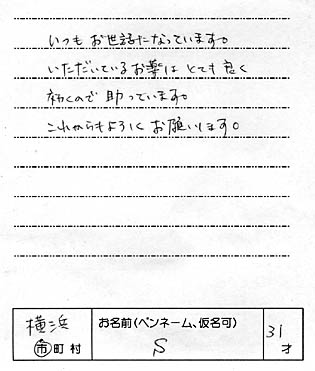 いつもお世話になっています。
いただいているお薬はとても良く
効くので助っています。
これからもよろしくお願いします。
横浜
市町村
お名前(ペンネーム、仮名可)
S
31
才